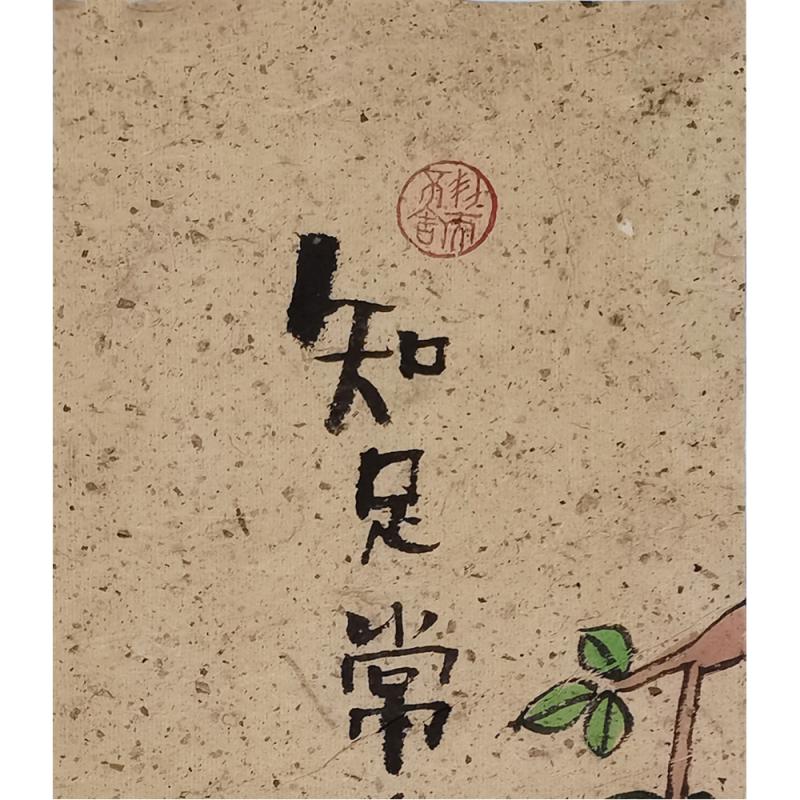 知足常